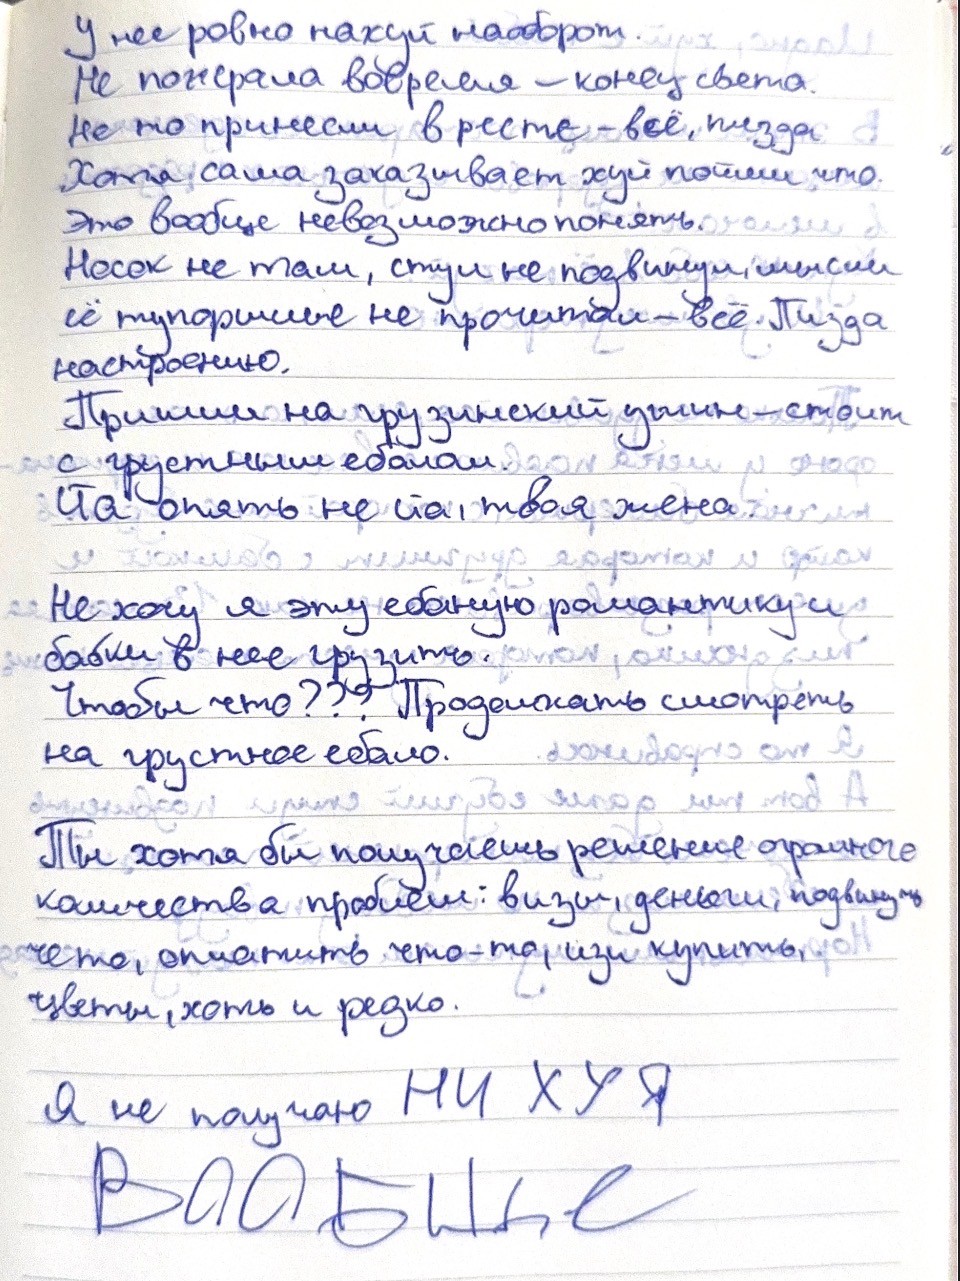 У нее ровно нахуй наоборот.
Не пожрала вовремя – конец света.
Не то принесли в ресте – всё, пизда
Хотя сама заказывает хуй пойми что.
Это вообще невозможно понять.
Носок не там, стул не подвинул, мысли
её тупорылые не прочитал – всё. Пизда
настроению.
Пришли на грузинский ужин – стоит
с грустным ебалом.
Йа опять не йа, твоя жена.
Не хочу я эту ебаную романтику и
бабки в нее грузить.
Чтобы что??? Продолжать смотреть
на грустное ебало.
Ты хотя бы получаешь решение огромного
количества проблем: визы, деньги, подвинуть
чето, оплатить что-то, изи купить,
цветы, хоть и редко.
Я не получаю НИ ХУЯ
ВААБЩЕ